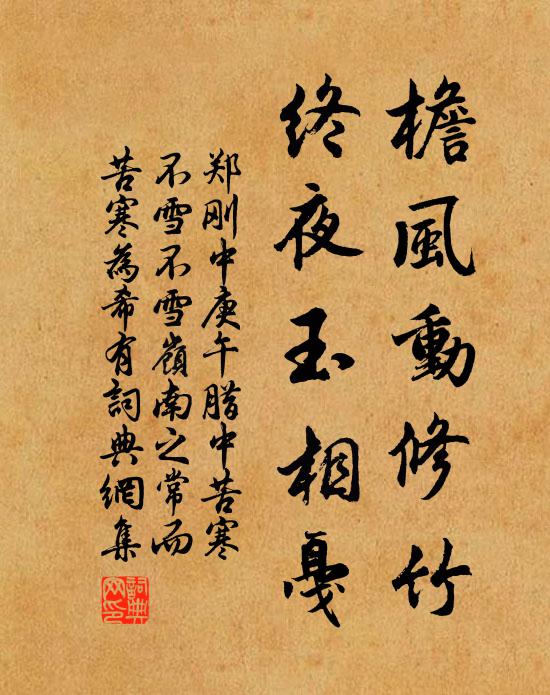 檐風動修竹
终夜玉相戛
郑刚中庚午腊中苦寒
不雪不雪嶺南之常而
苦寒為希有詞典網集
詞典网印